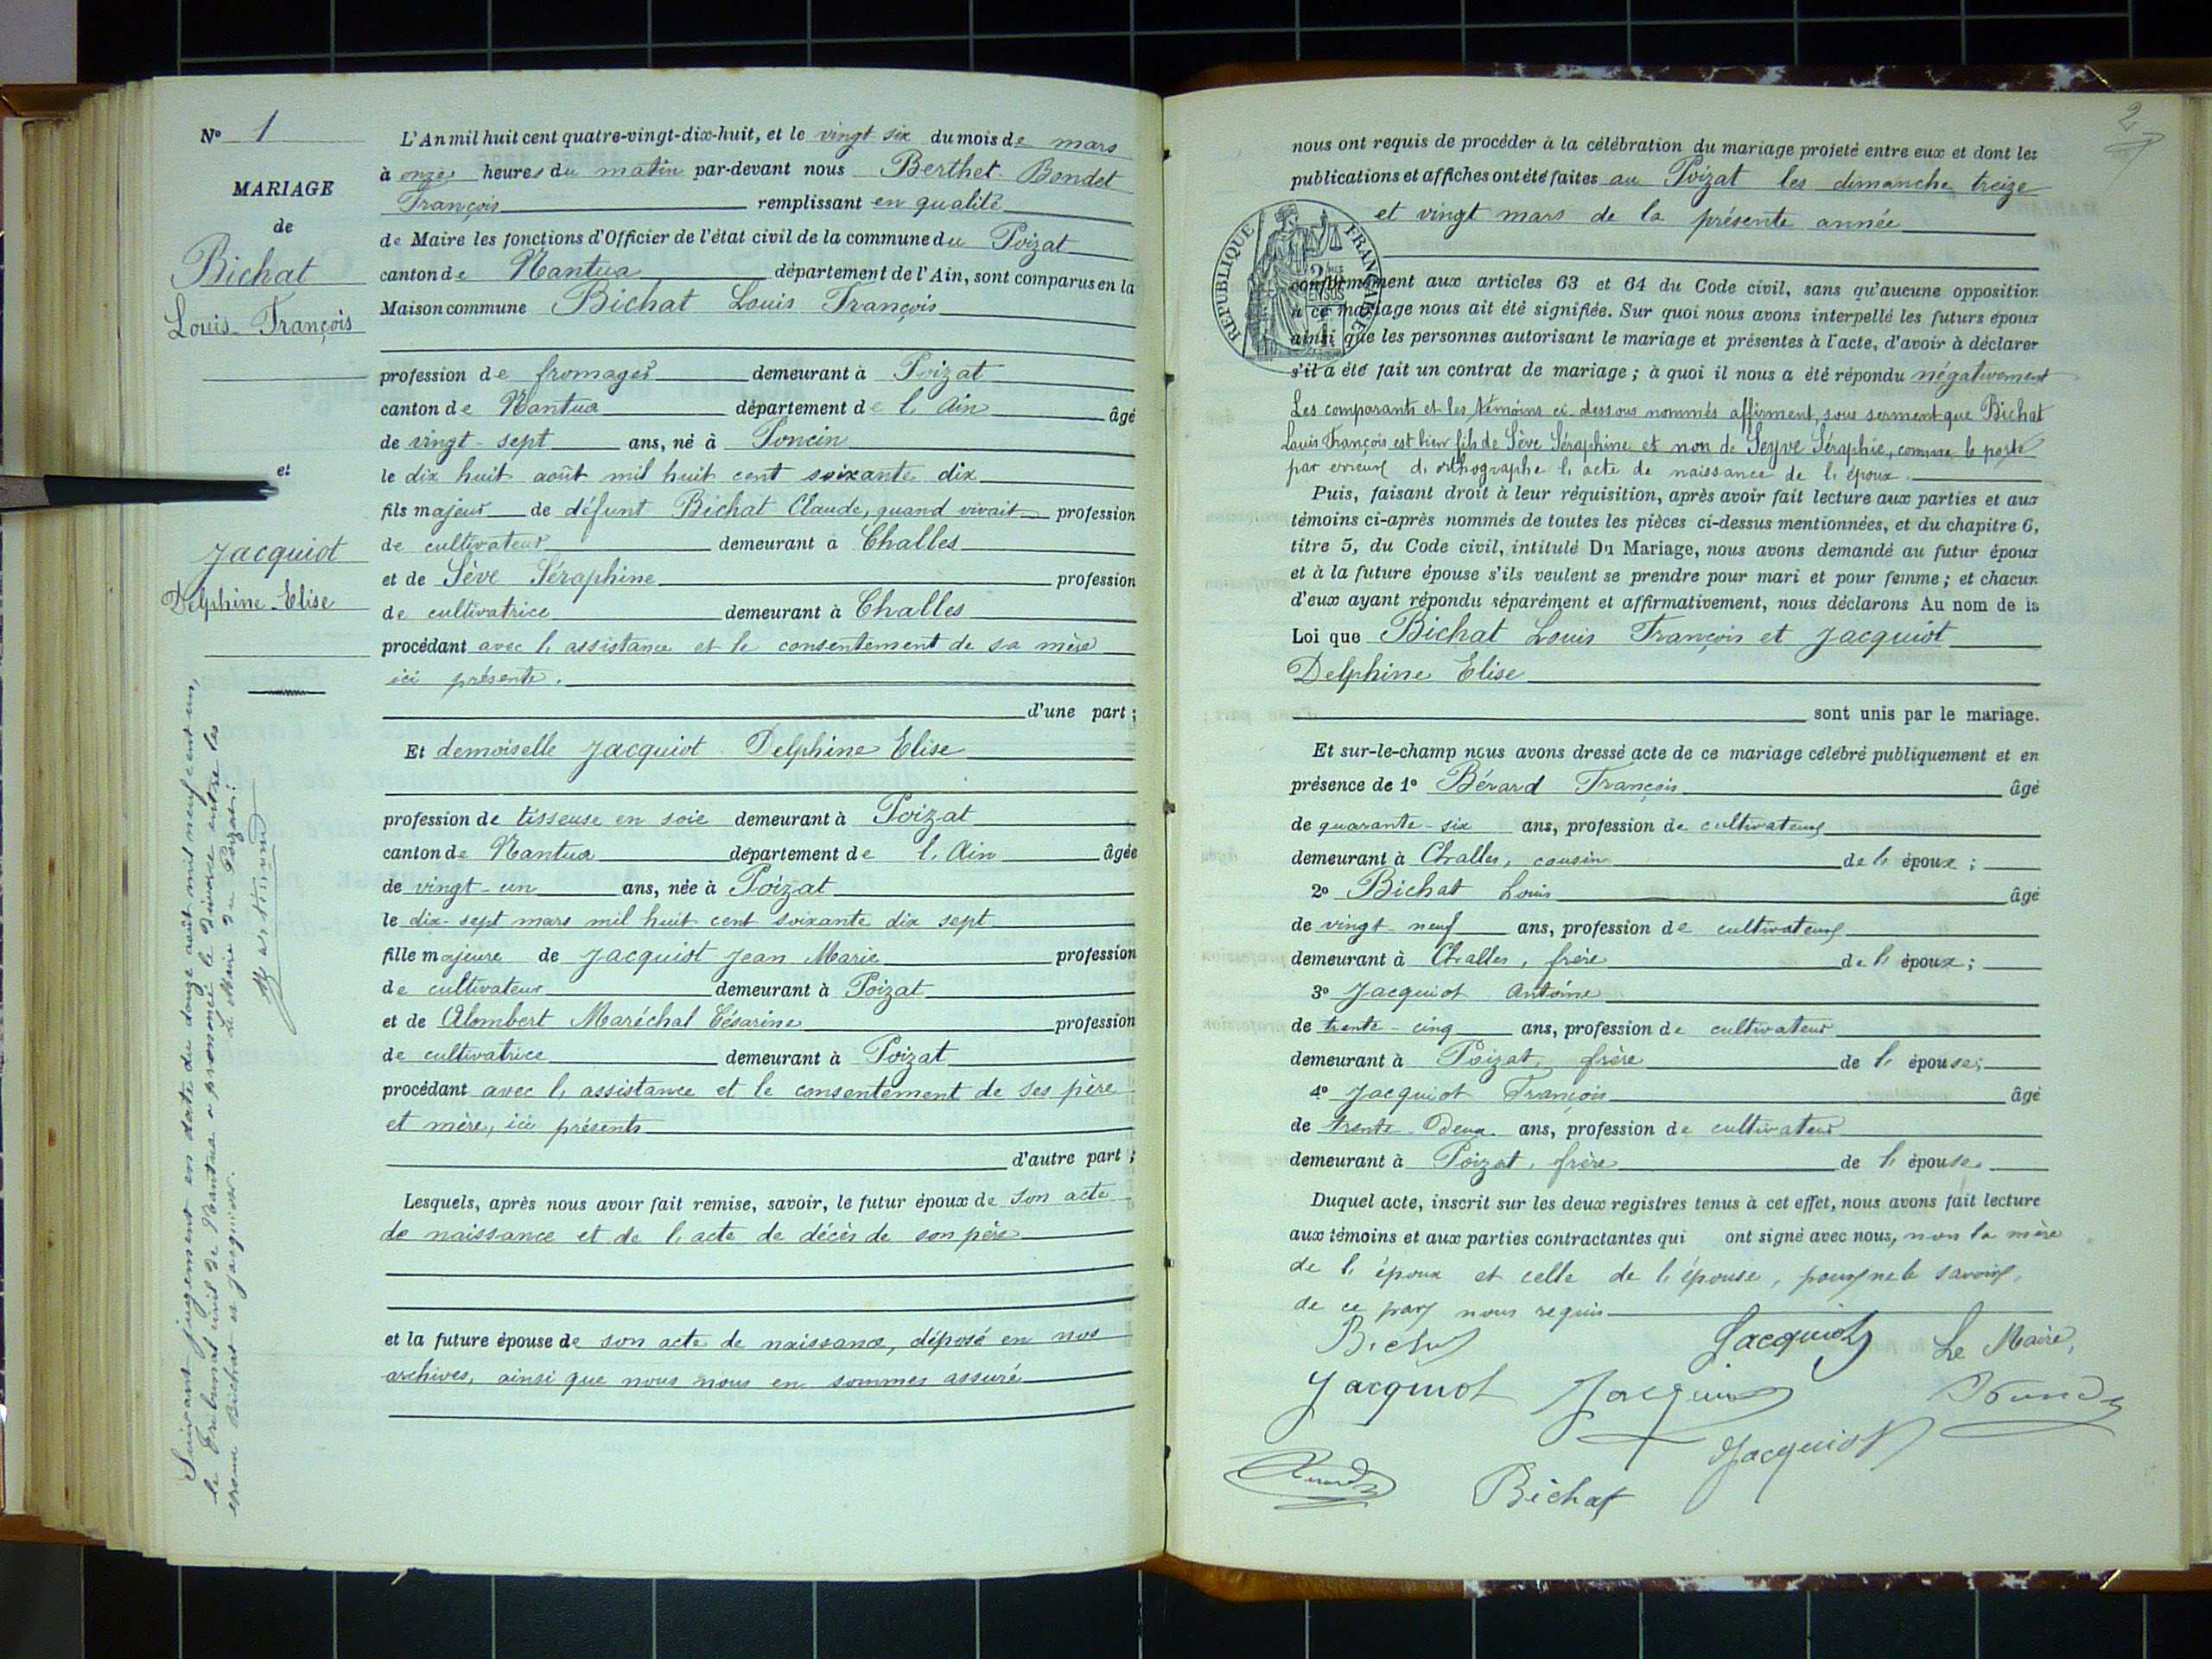 Nº 1
MARIAGE
de
Bichat
Louis François
et
Jacquiot
Delphine Elise
Suivant jugement en date du douze août mil neuf cent un,
le Tribunal civil de Nantua a prononcé le divorce entre les
époux Bichat et Jacquiot. Le Maire du Poizat:
L'An mil huit cent quatre-vingt-dix-huit, et le vingt six du mois de mars
à onze heures du matin par-devant nous Berthet-Bondet
François remplissant en qualité
de Maire les fonctions d'Officier de l'état civil de la commune du Poizat
canton de Nantua département de l'Ain, sont comparus en la
Maison commune Bichat Louis François
profession de fromager demeurant à Poizat
canton de Nantua département de l'Ain âgé
de vingt-sept ans, né à Poncin
le dix huit août mil huit cent soixante dix
fils majeur de défunt Bichat Claude, quand vivait profession
de cultivateur demeurant à Challes
et de Sève Séraphine profession
de cultivatrice demeurant à Challes
procédant avec l'assistance et le consentement de sa mère
ici présente.
d'une part ;
Et demoiselle Jacquiot Delphine Elise
profession de tisseuse en soie demeurant à Poizat
canton de Nantua département de l'Ain âgée
de vingt-un ans, née à Poizat
le dix-sept mars mil huit cent soixante dix sept
fille majeure de Jacquiot Jean Marie profession
de cultivateur demeurant à Poizat
et de Alombert Maréchal Césarine profession
de cultivatrice demeurant à Poizat
procédant avec l'assistance et le consentement de ses père
et mère, ici présents
d'autre part ;
Lesquels, après nous avoir fait remise, savoir, le futur époux de son acte
de naissance et de l'acte de décès de son père
et la future épouse de son acte de naissance, déposé en nos
archives, ainsi que nous nous en sommes assuré
2
nous ont requis de procéder à la célébration du mariage projeté entre eux et dont les
publications et affiches ont été faites au Poizat les dimanche treize
et vingt mars de la présente année
RÉPUBLIQUE FRANÇAISE
conformément aux articles 63 et 64 du Code civil, sans qu'aucune opposition
à ce mariage nous ait été signifiée. Sur quoi nous avons interpellé les futurs époux
ainsi que les personnes autorisant le mariage et présentes à l'acte, d'avoir à déclarer
s'il a été fait un contrat de mariage ; à quoi il nous a été répondu négativement
Les comparants et les témoins ci-dessous nommés affirment, sous serment que Bichat
Louis François est bien fils de Sève Séraphine et non de Seyve Séraphie, comme le porte
par erreur d'orthographe l'acte de naissance de l'époux.
Puis, faisant droit à leur réquisition, après avoir fait lecture aux parties et aux
témoins ci-après nommés de toutes les pièces ci-dessus mentionnées, et du chapitre 6,
titre 5, du Code civil, intitulé Du Mariage, nous avons demandé au futur époux
et à la future épouse s'ils veulent se prendre pour mari et pour femme ; et chacun
d'eux ayant répondu séparément et affirmativement, nous déclarons Au nom de la
Loi que Bichat Louis François et Jacquiot
Delphine Elise
sont unis par le mariage.
Et sur-le-champ nous avons dressé acte de ce mariage célébré publiquement et en
présence de 1º Bérard François âgé
de quarante-six ans, profession de cultivateur
demeurant à Challes, cousin de l'époux ;
2º Bichat Louis âgé
de vingt-neuf ans, profession de cultivateur
demeurant à Challes, frère de l'époux ;
3º Jacquiot Antoine
de trente-cinq ans, profession de cultivateur
demeurant à Poizat, frère de l'épouse ;
4º Jacquiot François âgé
de trente-deux ans, profession de cultivateur
demeurant à Poizat, frère de l'épouse.
Duquel acte, inscrit sur les deux registres tenus à cet effet, nous avons fait lecture
aux témoins et aux parties contractantes qui ont signé avec nous, non la mère
de l'époux et celle de l'épouse, pour ne le savoir,
de ce par nous requis
Bichat Jacquiot Le Maire,
Jacquiot Jacquiot
Jacquiot
Bichat